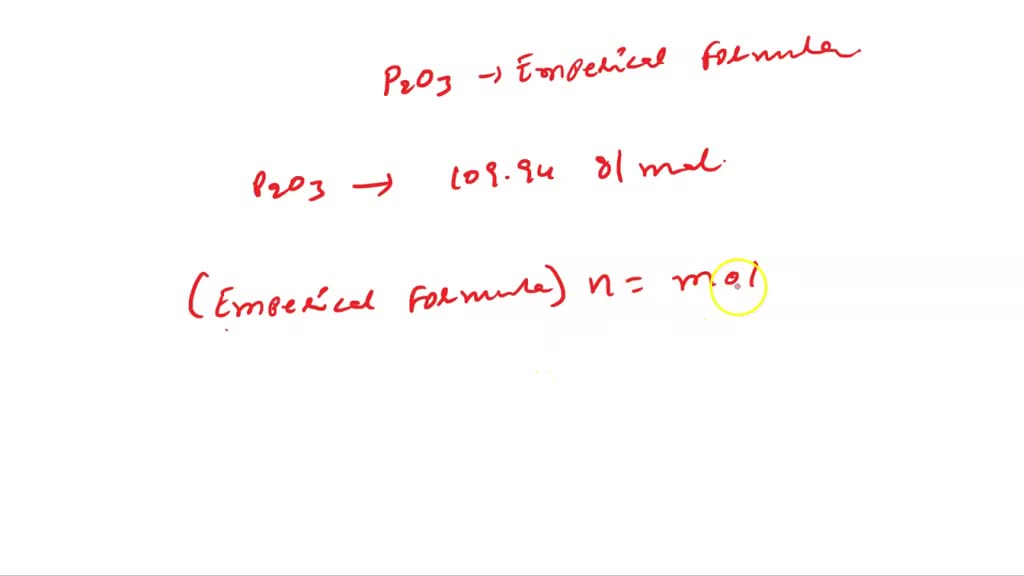 P2O3 → Emperical formula
P2O3 → 109.94 g/mol.
(Emperical formula) n = mol